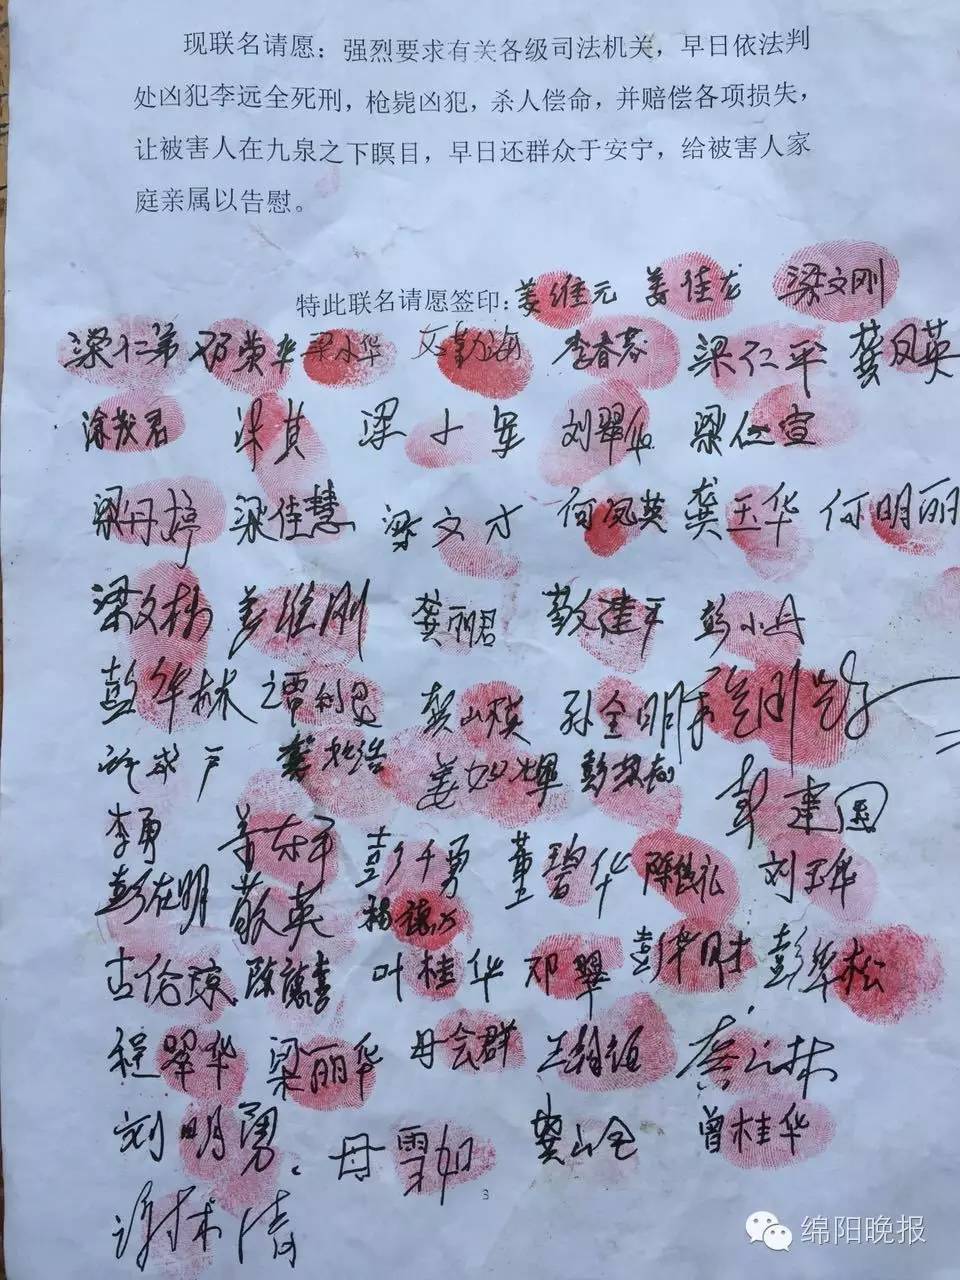 现联名请愿：强烈要求有关各级司法机关，早日依法判
处凶犯李远全死刑，枪毙凶犯，杀人偿命，并赔偿各项损失，
让被害人在九泉之下瞑目，早日还群众于安宁，给被害人家
庭亲属以告慰。
特此联名请愿签印：姜维元 姜佳龙 梁文刚
梁仁第 邓荣华 梁小华 李春蓉 梁仁平 龚凤英
涂茂君 梁其 梁小军 刘翠华 梁仁宣
梁丹婷 梁佳慧 梁文才 何凤英 龚玉华 何明丽
梁文栋 姜维刚 龚丽君 敬建平 彭小丹
彭华林 谭利君 龚山琪 孙全明
彭建国
李勇 姜东平 彭千勇 董碧华 刘玉华
彭在明 敬英 杨德力
古伦琼 陈藤春 叶桂华 邓翠 彭华财 彭华松
程翠华 梁丽华 母会群 龚云林
刘明勇 母雪如 樊山全 曾桂华
3
绵阳晚报